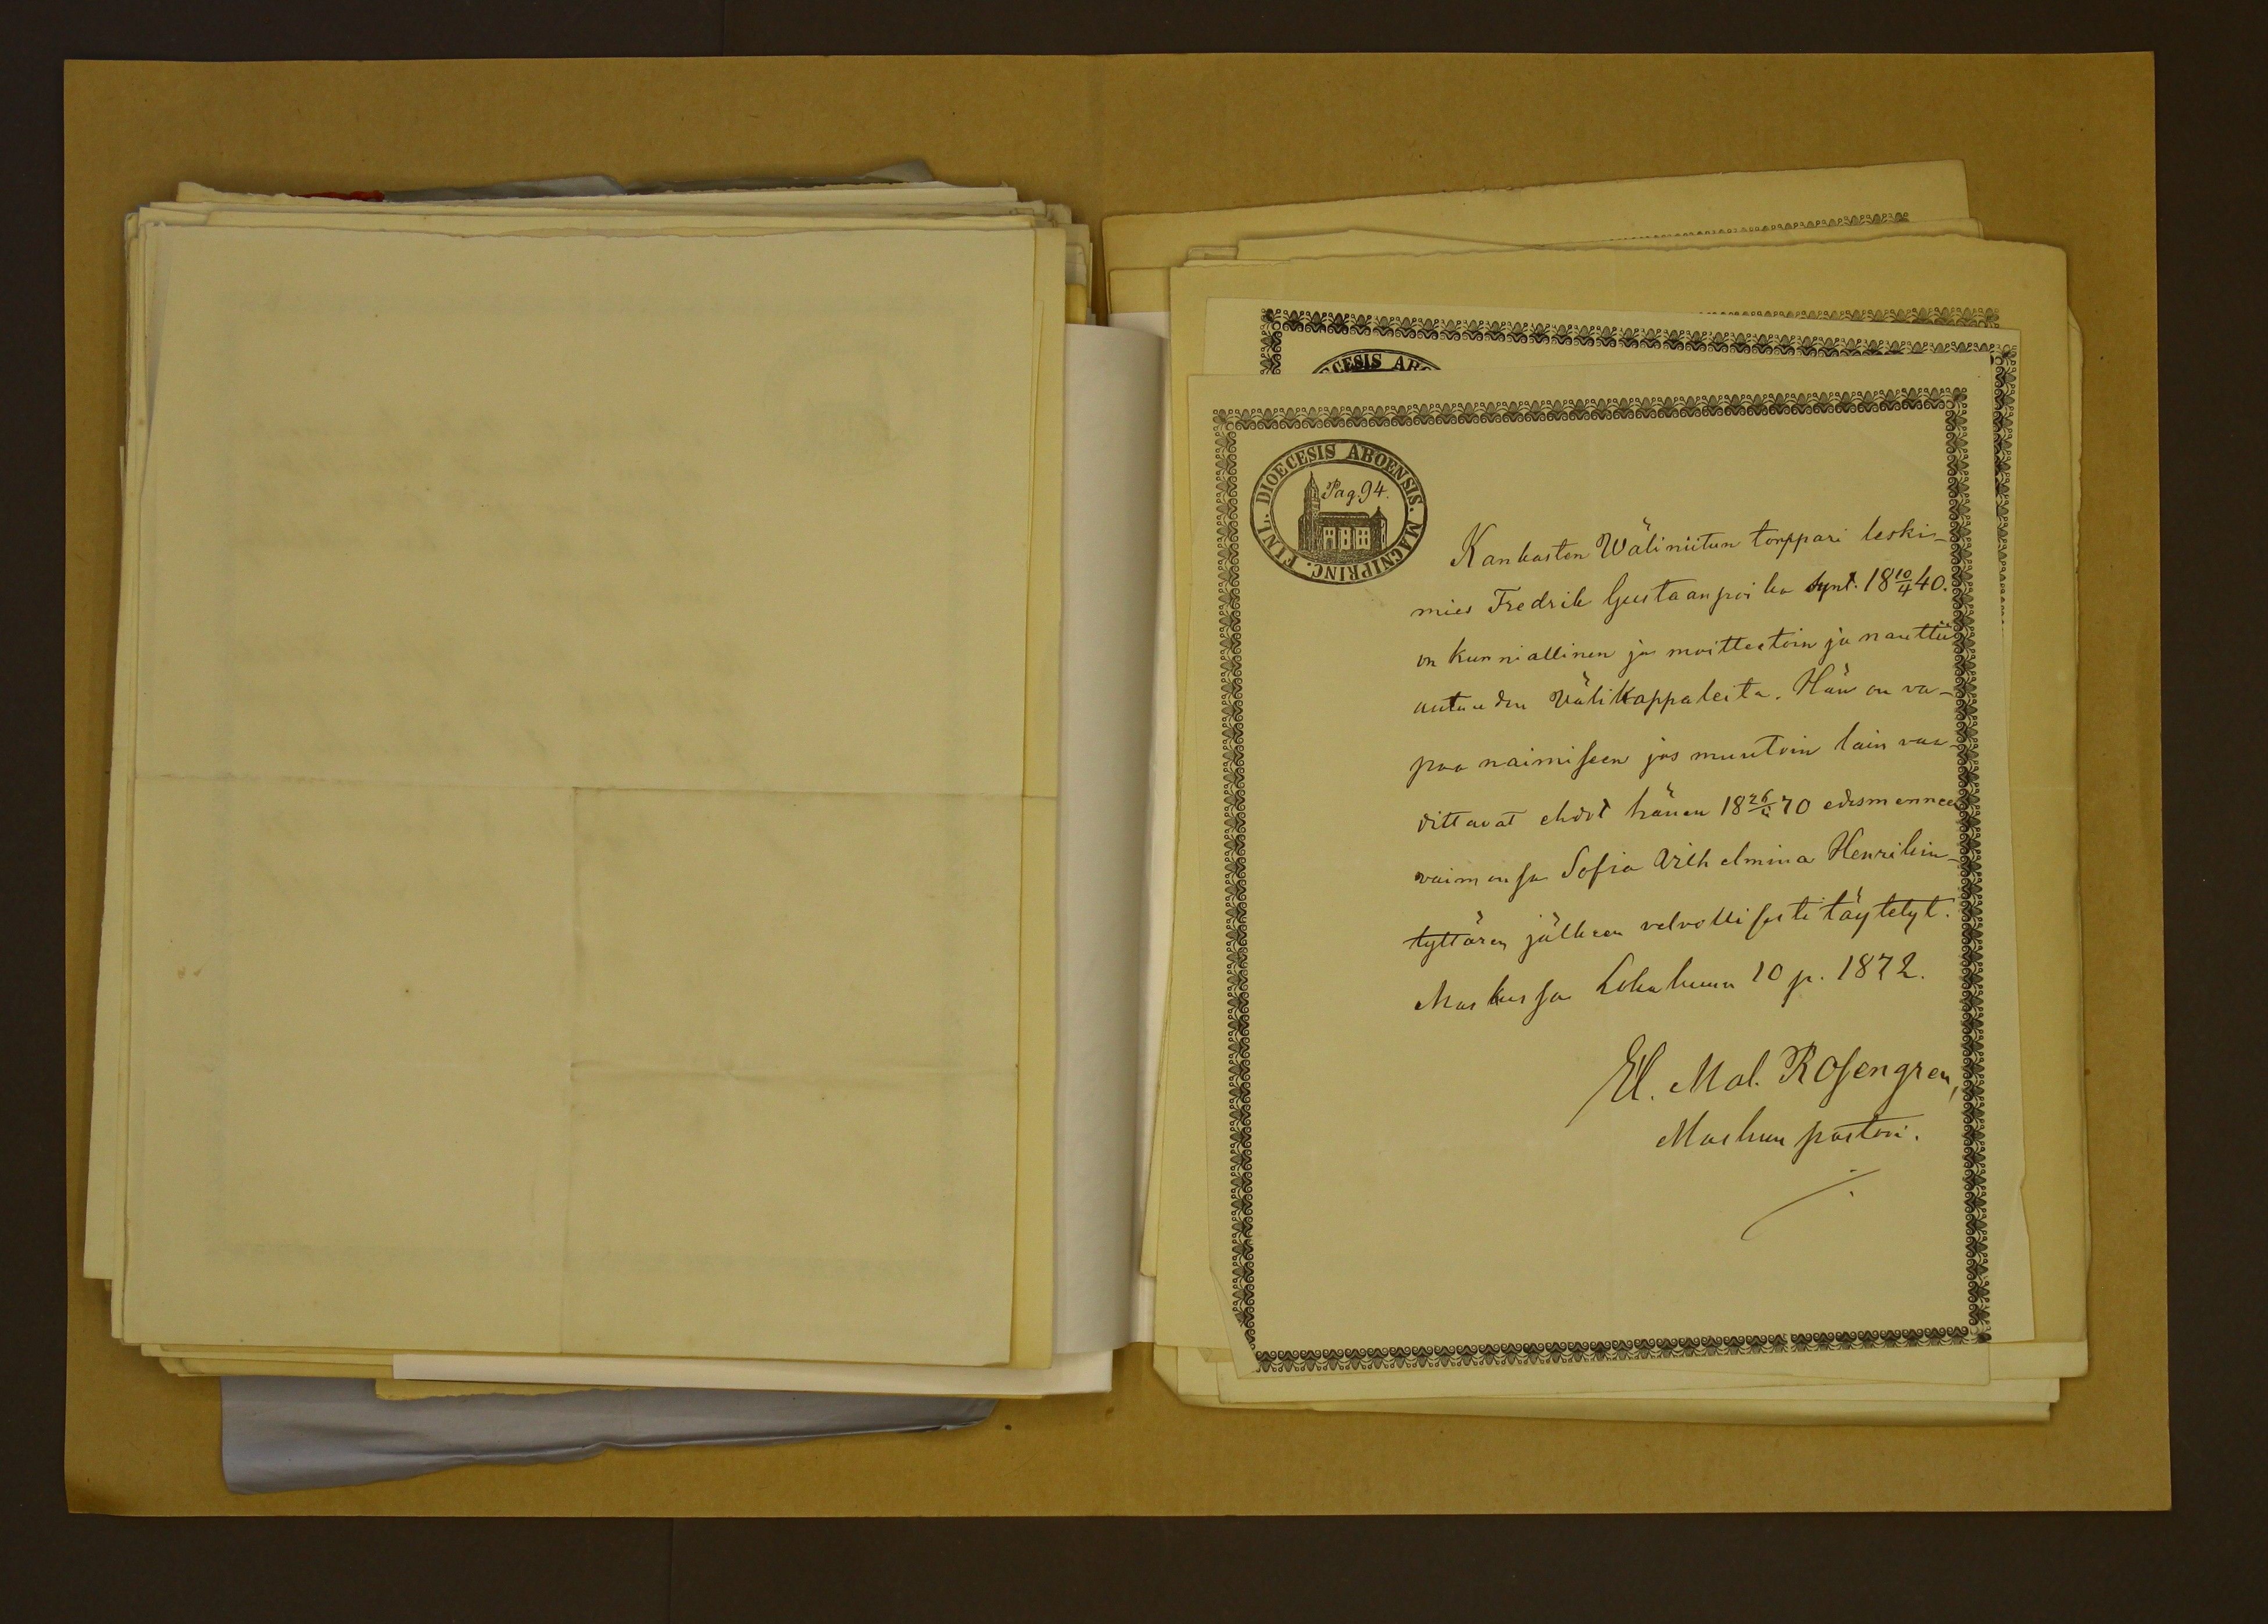 CESIS ABO
DIOECESIS ABOENSIS. MAGNIPRINC. FINL.
Pag. 94.
Kankasten Wäliniitun torppari leski-
mies Fredrik Gustaanpoika synt. 18 10/4 40.
on kunniallinen ja moitteetoin ja nauttii
autuuden välikappaleita. Hän on va-
paa naimiseen jos muutoin lain vaa-
dittavat ehdot hänen 18 26/ 70 edesmenneen
vaimonsa Sofia Wilhelmina Henrikin-
tyttären jälkeen velvollisesti täytetyt.
Maskussa Lokakuun 10 p. 1872.
El. Mal. Rosengren,
Maskun pastori.